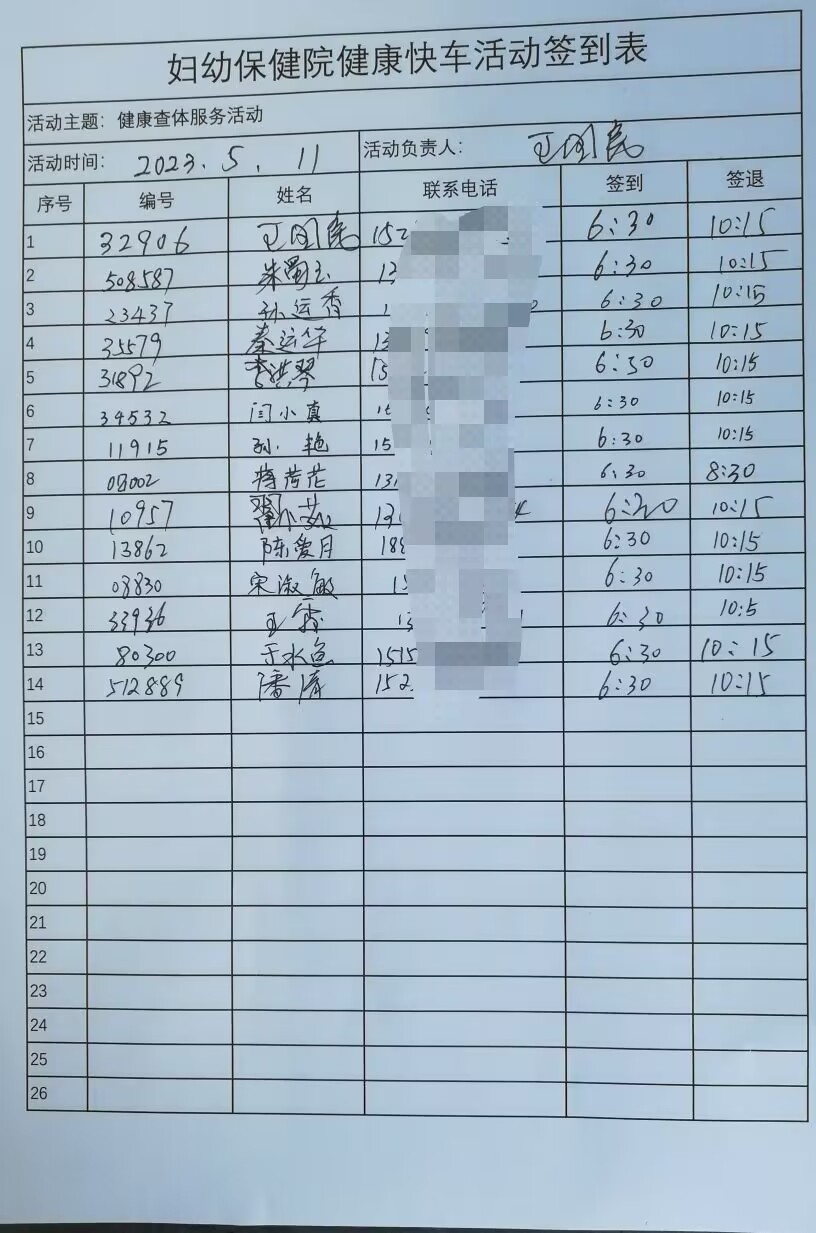 妇幼保健院健康快车活动签到表
活动主题：健康查体服务活动
活动时间： 2023.5.11 活动负责人： 王国民
序号 编号 姓名 联系电话 签到 签退
1 32906 王国民 152 6:30 10:15
2 508587 朱蜀玉 13 6:30 10:15
3 23437 孙运香 1 6:30 10:15
4 35579 秦运华 13 6:30 10:15
5 31892 李洪琴 13 6:30 10:15
6 34532 闫小真 15 6:30 10:15
7 11915 孙艳 15 6:30 10:15
8 08002 蒋荷花 131 6:30 8:30
9 10957 6:30 10:15
10 13862 陈爱月 188 6:30 10:15
11 08830 宋淑敏 1 6:30 10:15
12 33936 王霞 13 6:30 10:5
13 80300 于水鱼 1515 6:30 10:15
14 512889 潘清 152 6:30 10:15
15
16
17
18
19
20
21
22
23
24
25
26